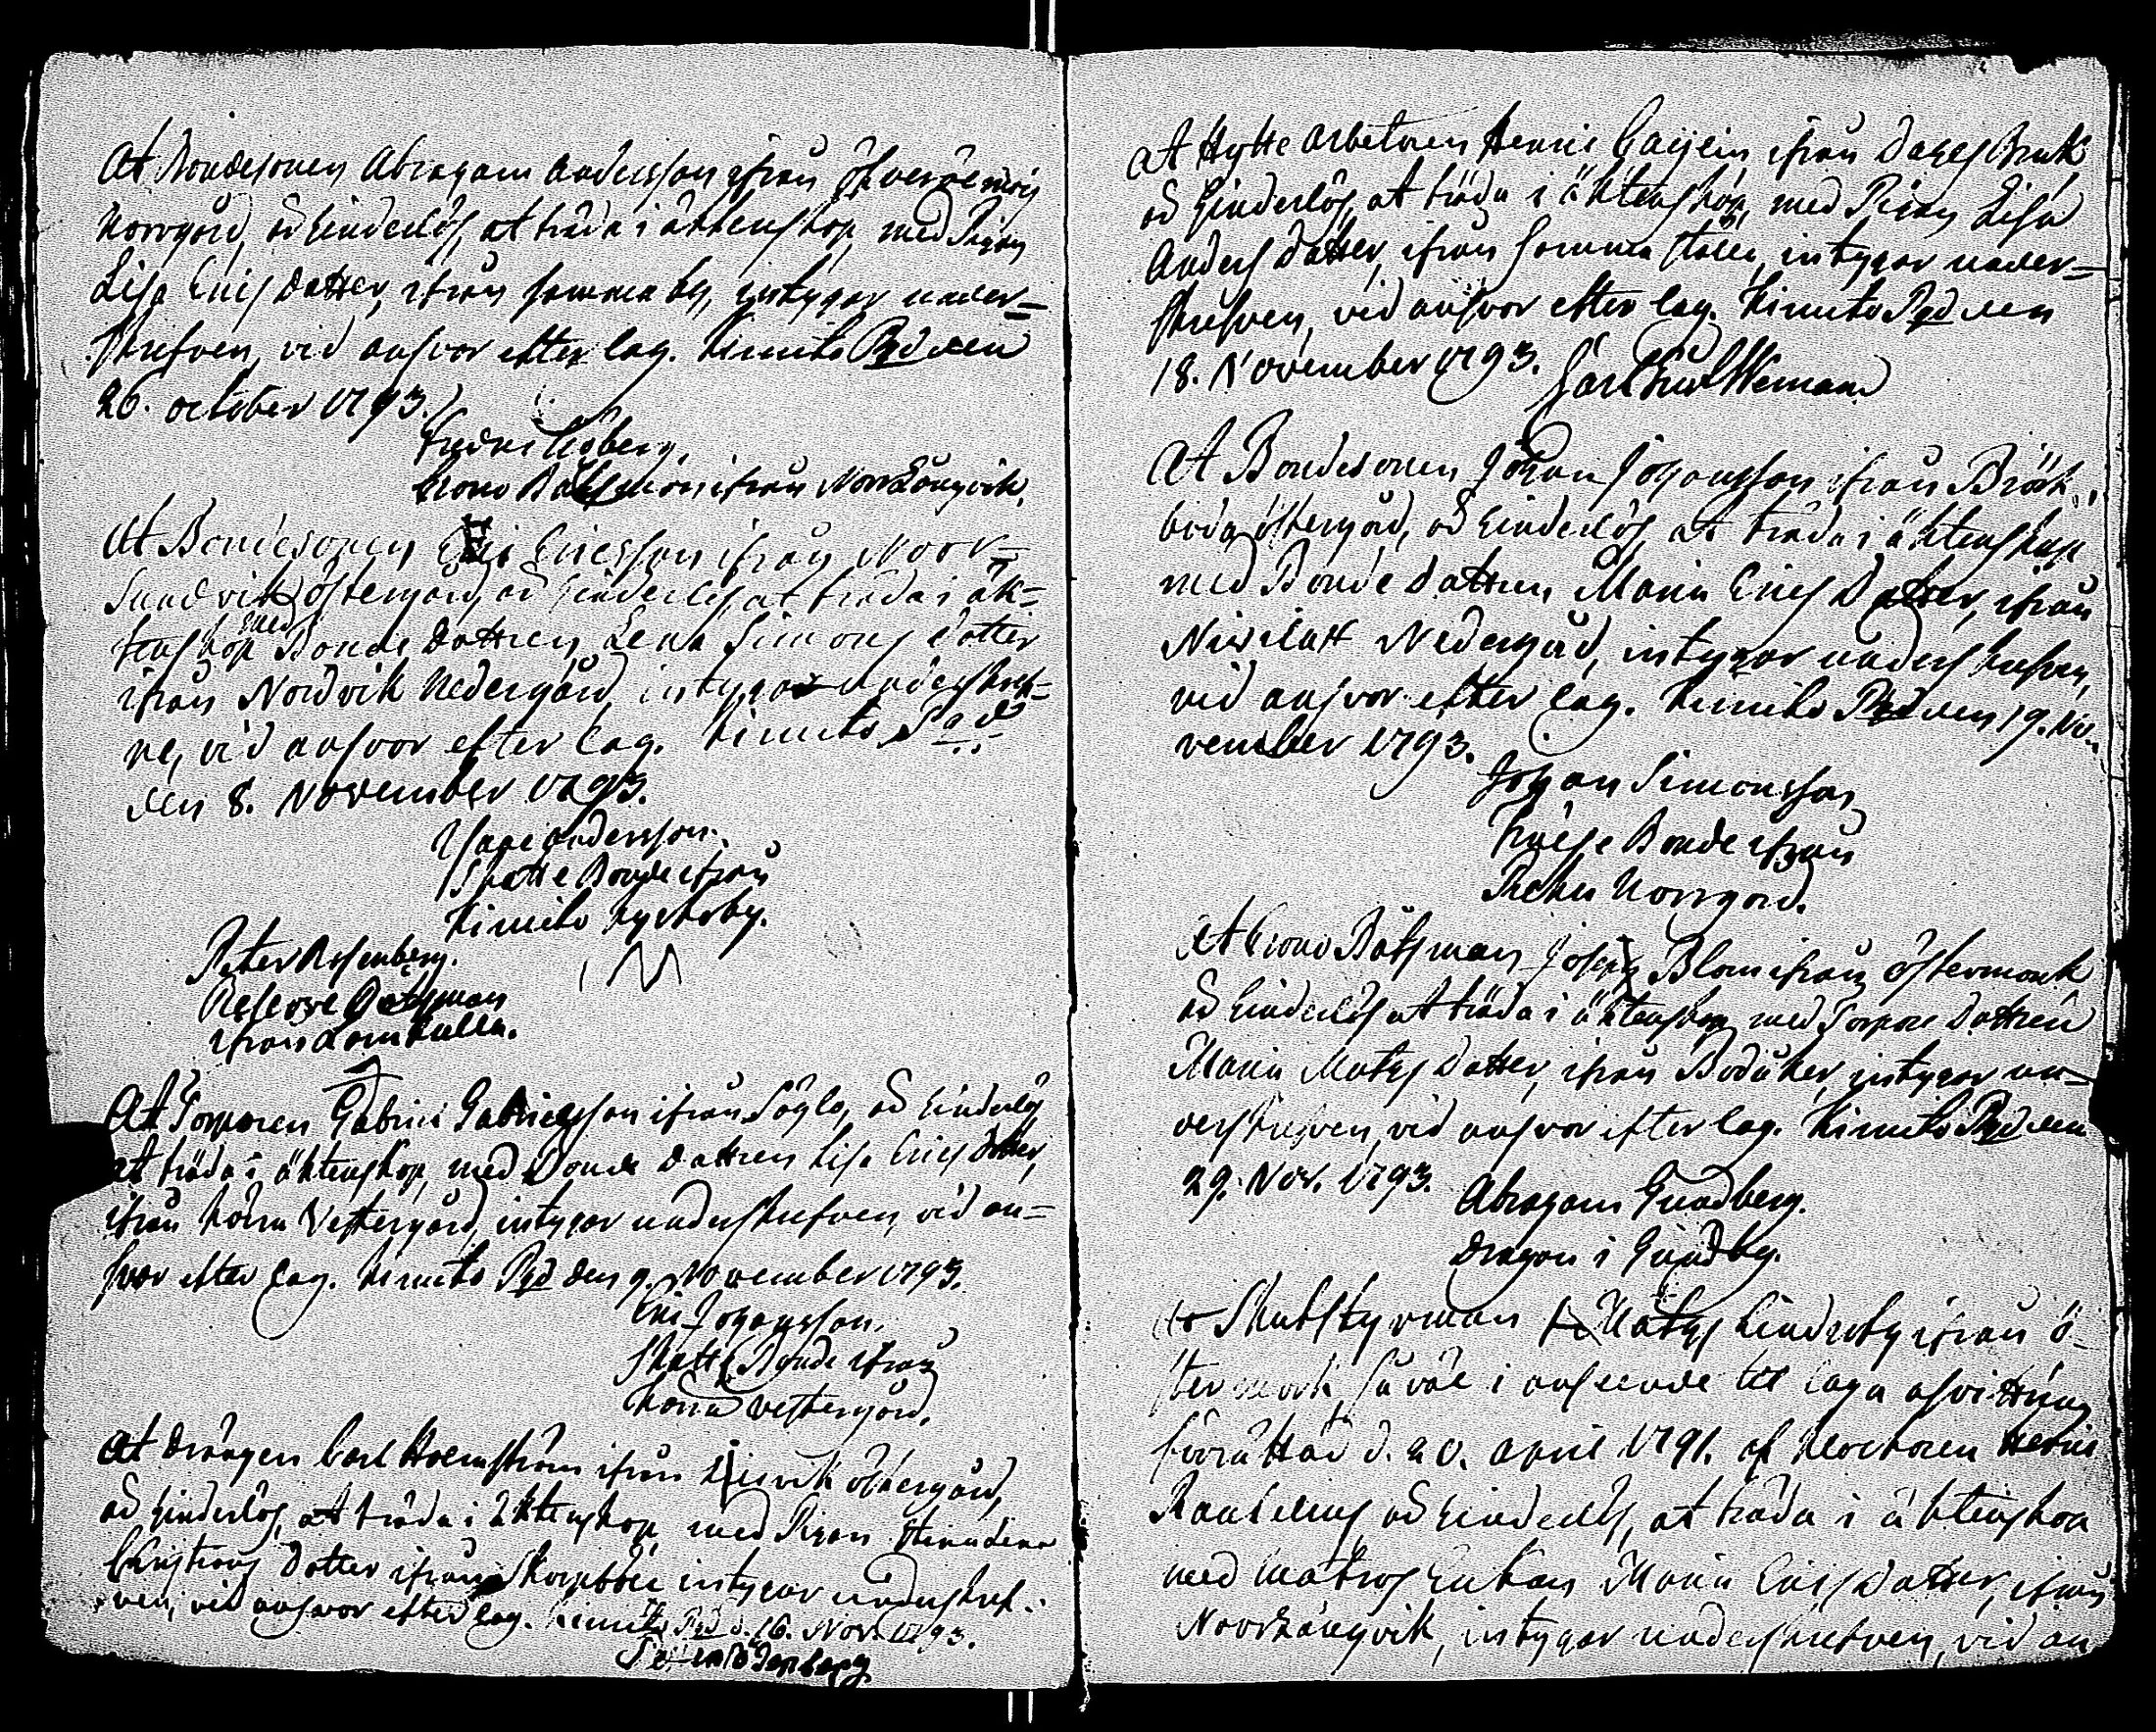 At Bondesonen Abraham Andersson ifrån
Norrgård, är hinderlös, at träda i äktenskap, med Pigan
Lisa Erics Dotter, ifrån samma by, intygar under-
skrefven, vid answar efter lag. Kimito Pgd den
26. october 1793.
Fredric Sjöberg.
Crono Båtsman ifrån Norrlångvik.
At Bondesonen Eric Ericsson ifrån Norr-
Sundvik östergård, är hinderlös, at träda i äk-
tenskap med Bonde Dottren Lena Simons dotter
ifrån Nordvik Nedergård, intygar underskref-
ne, vid answar efter lag. Kimito Pgd
den 8. November 1793.
Isac Andersson.
Skatte Bonde ifrån
Kimito kyrkoby.
Peter Rosenberg.
Reserve Båtsman
ifrån
At Torparen Gabriel Gabrielsson ifrån Söglo, är hinderlös
at träda i äktenskap, med Bonde dottren Lisa Erics dotter,
ifrån Vestergård, intygar underskrefven, vid an-
svar efter lag. Kimito Pgd den 9. November 1793.
Eric Johansson.
Skatte Bonde ifrån
Vestergård.
At drängen Carl Holmström ifrån östergård,
är hinderlös, at träda i äktenskap, med Pigan
Christians dotter ifrån intygar underskref-
ven, vid answar efter lag. Kimito Pgd d. 16. Nov. 1793.
At Hytte arbetaren Henric ifrån Dahls Bruk
är hinderlös, at träda i äktenskap, med Pigan Lisa
Anders dotter, ifrån samma ställe, intygar under-
skrefven, vid answar efter lag. Kimito Pgd den
18. November 1793. Carl Eric Wiman
At Bondesonen Johan Johansson ifrån Bräk-
boda östergård, är hinderlös, at träda i äktenskap
med Bonde dottren Maria Erics Dotter, ifrån
Nedergård, intygar underskrefven,
vid answar efter lag. Kimito Pgd den 19. No-
vember 1793.
Johan Simonsson
Frälse Bonde ifrån
Norrgård.
At Crono Båtsman Joseph Blom ifrån östermark
är hinderlös at träda i äktenskap med Torpare Dottren
Maria Mats Dotter, ifrån Bodåker, intygar un-
derskrefven, vid answar efter lag. Kimito Pgd den
29. Nov. 1793. Abraham Gundberg.
Dragon i Gundby.
At Skutskyrman Mats Lindroth ifrån ö-
stermark så väl i anseende till laga afvittring
förrättad d. 20. april 1791. af Klockaren Henric
är hinderlös, at träda i äktenskap
med Matros Enkan Maria Erics Dotter, ifrån
Norrlångvik, intygar underskrefven, vid an